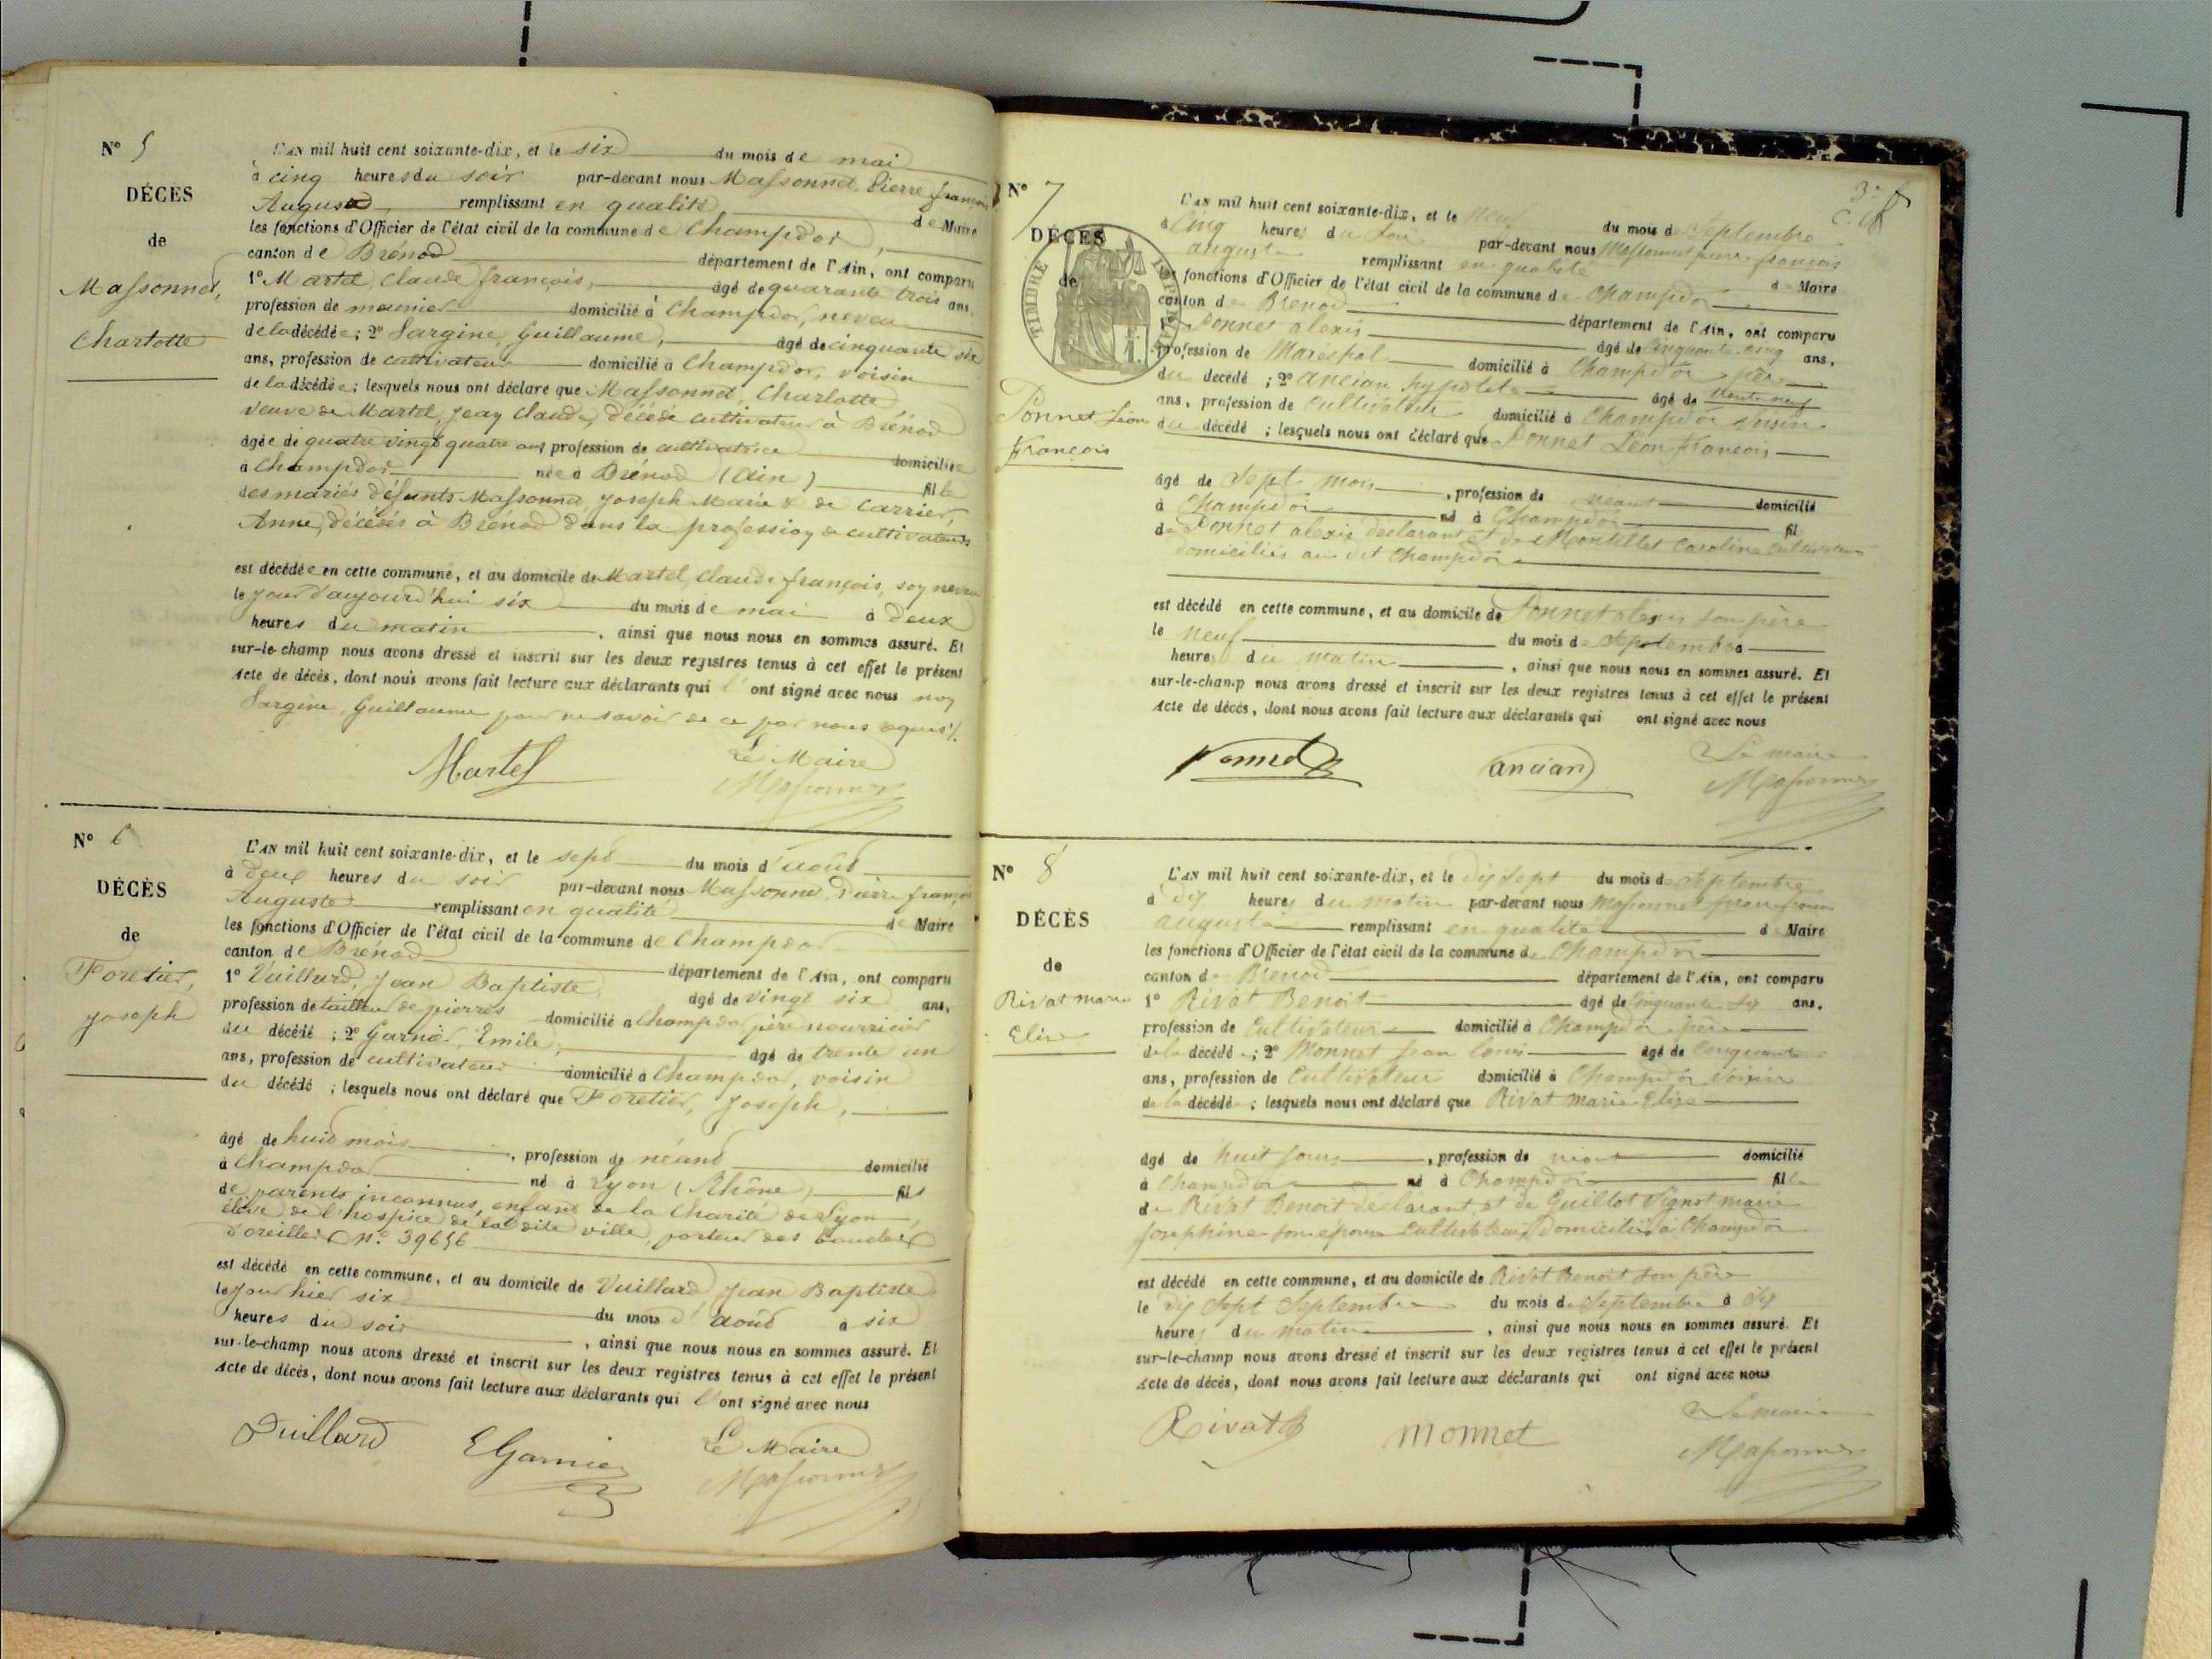 N° 5
DÉCÈS
de
Massonnet,
Charlotte
L'AN mil huit cent soixante-dix, et le six du mois de mai
à cinq heures du soir par-devant nous Massonnet, Pierre françois
Auguste, remplissant en qualité de Maire
les fonctions d'Officier de l'état civil de la commune de Champdor,
canton de Brénod département de l'Ain, ont comparu
1° Martel, Claude françois, âgé de quarante trois ans,
profession de meunier domicilié à Champdor, neveu
de la décédée ; 2° Sargine, Guillaume, âgé de cinquante six
ans, profession de cultivateur domicilié à Champdor, voisin
de la décédée ; lesquels nous ont déclaré que Massonnet, Charlotte
veuve de Martel, Jean Claude, décédé cultivateur à Brénod
âgée de quatre vingt quatre ans profession de cultivatrice domiciliée
à Champdor née à Brénod (Ain) fille
des mariés défunts Massonnet, Joseph Marie & de Carrier,
Anne, décédés à Brénod dans la profession de cultivateurs
est décédée en cette commune, et au domicile de Martel, Claude françois, son neveu
le jour d'aujourd'hui six du mois de mai à deux
heures du matin, ainsi que nous nous en sommes assuré. Et
sur-le-champ nous avons dressé et inscrit sur les deux registres tenus à cet effet le présent
Acte de décès, dont nous avons fait lecture aux déclarants qui l'ont signé avec nous non
Sargine, Guillaume pour ne savoir de ce par nous requis./.
Martel Le Maire
Massonnet
N° 6
DÉCÈS
de
Foretier,
Joseph
L'AN mil huit cent soixante-dix, et le sept du mois d'août
à deux heures du soir par-devant nous Massonnet, Pierre françois
Auguste remplissant en qualité de Maire
les fonctions d'Officier de l'état civil de la commune de Champdor
canton de Brénod département de l'Ain, ont comparu
1° Vuillard, Jean Baptiste, âgé de vingt six ans,
profession de tailleur de pierres domicilié à Champdor père nourricier
du décédé ; 2° Garnier, Emile, âgé de trente un
ans, profession de cultivateur domicilié à Champdor, voisin
du décédé ; lesquels nous ont déclaré que Foretier, Joseph,
âgé de huit mois, profession de néant domicilié
à Champdor né à Lyon (Rhône) fils
de parents inconnus, enfant de la Charité de Lyon,
élève de l'hospice de la dite ville, porteur des boucles
d'oreilles n° 39656
est décédé en cette commune, et au domicile de Vuillard Jean Baptiste
le jour hier six du mois d'août à six
heures du soir, ainsi que nous nous en sommes assuré. Et
sur-le-champ nous avons dressé et inscrit sur les deux registres tenus à cet effet le présent
Acte de décès, dont nous avons fait lecture aux déclarants qui l'ont signé avec nous
Vuillard EGarnier Le Maire
Massonnet
3e
N° 7
DÉCÈS
de
TIMBRE IMPÉRIAL
Ponnet Léon
François
L'AN mil huit cent soixante-dix, et le neuf du mois de Septembre
à Cinq heures du soir par-devant nous Massonnet pierre françois
auguste remplissant en qualité de Maire
les fonctions d'Officier de l'état civil de la commune de Champdor
canton de Brenod département de l'Ain, ont comparu
1° Ponnet alexis âgé de Cinquante cinq ans,
profession de Maréchal domicilié à Champdor père
du décédé ; 2° ancian hypolite âgé de trente neuf
ans, profession de Cultivateur domicilié à Champdor voisin
du décédé ; lesquels nous ont déclaré que Ponnet Léon françois
âgé de Sept mois, profession de neant domicilié
à Champdor né à Champdor fil
de Ponnet alexis declarant et de Montillet Caroline Cultivateurs
domiciliés au dit Champdor
est décédé en cette commune, et au domicile de Ponnet alexis son père
le neuf du mois de Septembre
heures du matin, ainsi que nous nous en sommes assuré. Et
sur-le-champ nous avons dressé et inscrit sur les deux registres tenus à cet effet le présent
Acte de décès, dont nous avons fait lecture aux déclarants qui ont signé avec nous
Ponnet ancian Le maire
Massonnet
N° 8
DÉCÈS
de
Rivat marie
Elise
L'AN mil huit cent soixante-dix, et le dix sept du mois de Septembre
à dix heures du matin par-devant nous Massonnet pierre françois
auguste remplissant en qualité de Maire
les fonctions d'Officier de l'état civil de la commune de Champdor
canton de Brenod département de l'Ain, ont comparu
1° Rivat Benoit âgé de Cinquante six ans,
profession de Cultivateur domicilié à Champdor père
de la décédée ; 2° Monnet jean louis âgé de Cinquante
ans, profession de Cultivateur domicilié à Champdor Voisin
de la décédée ; lesquels nous ont déclaré que Rivat Marie Elise
âgé de huit jours, profession de neant domicilié
à Champdor né à Champdor fille
de Rivat Benoit déclarant et de Guillot Vignot marie
Josephine son épouse Cultivateurs domiciliés à Champdor
est décédé en cette commune, et au domicile de Rivat Benoit son père
le dix Sept Septembre du mois de Septembre à six
heures du matin, ainsi que nous nous en sommes assuré. Et
sur-le-champ nous avons dressé et inscrit sur les deux registres tenus à cet effet le présent
Acte de décès, dont nous avons fait lecture aux déclarants qui ont signé avec nous
Rivat B monnet Le maire
Massonnet